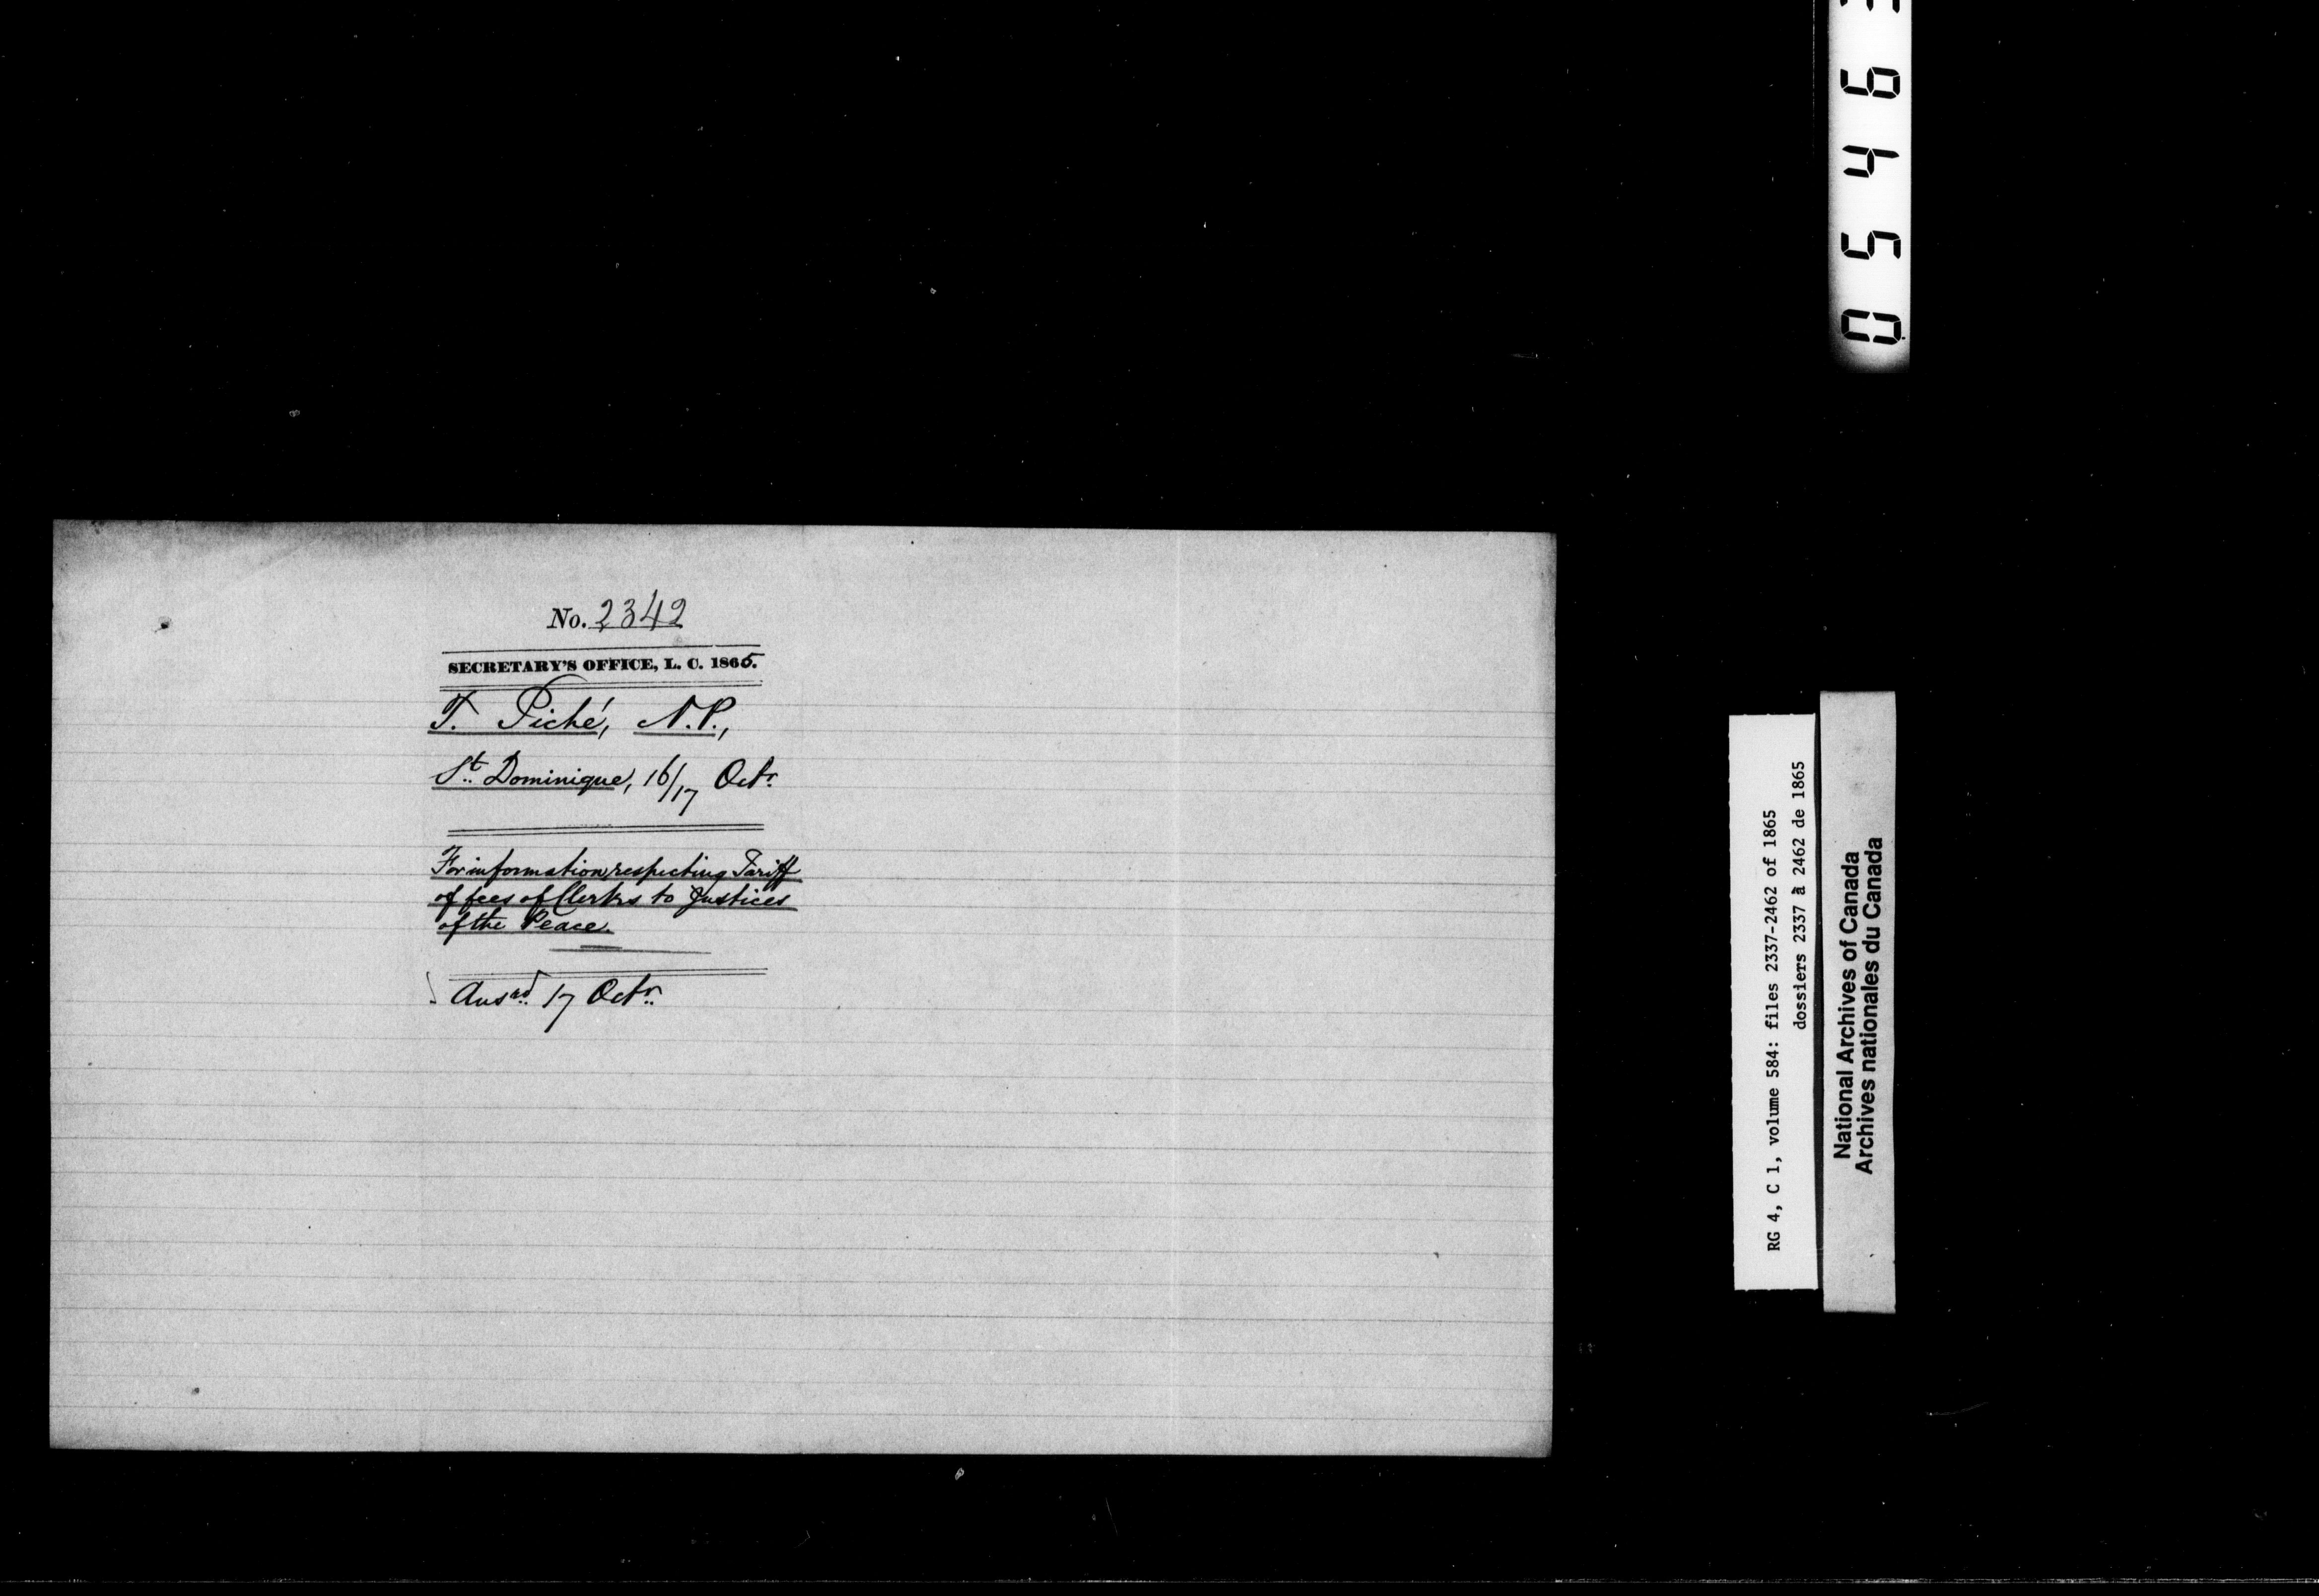 No. 2342
SECRETARY'S OFFICE, L. C. 1865.
T. Piché, N.P.,
St. Dominique, 16/17 Octr.
For information respecting Tariff
of fees of Clerks to Justices
of the Peace.
Ansrd. 17 Octr.
0 5 4 6
RG 4, C 1, volume 584: files 2337-2462 of 1865
dossiers 2337 à 2462 de 1865
National Archives of Canada
Archives nationales du Canada